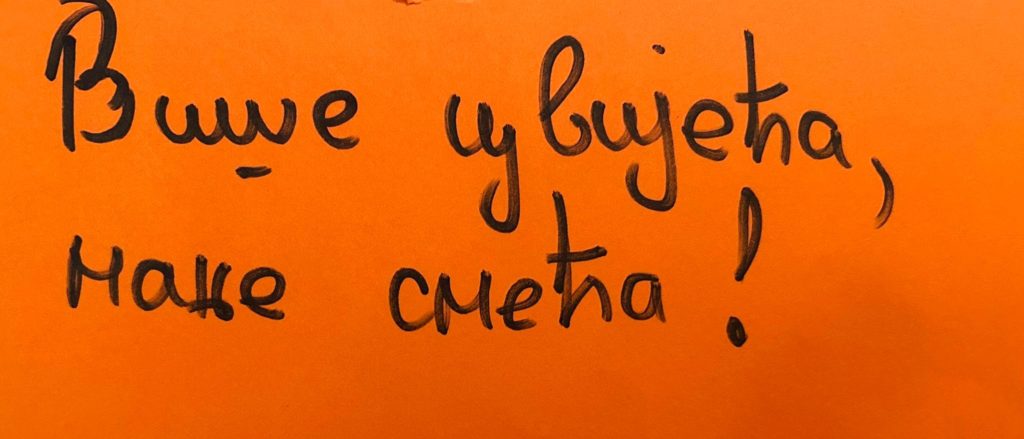 Више цвијећа,
мање смећа!